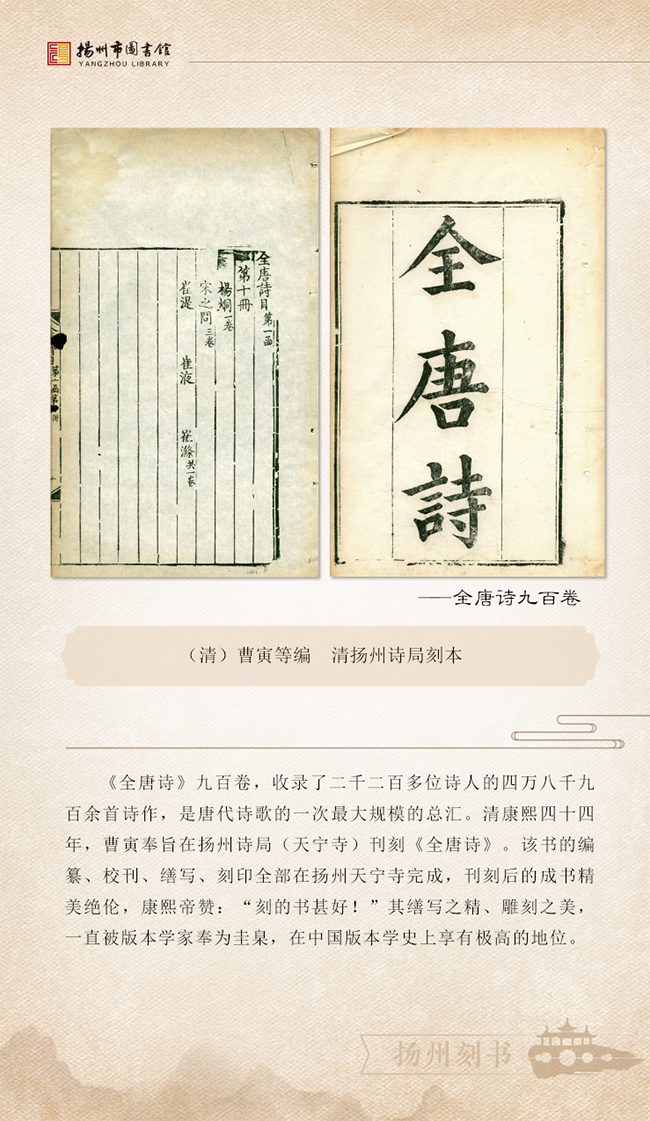 揚州市圖書館
YANGZHOU LIBRARY
全唐詩目第一函
第十冊
楊炯一卷
宋之問三卷
崔湜 崔液 崔滌共一卷
全唐詩
——全唐诗九百卷
（清）曹寅等编 清扬州诗局刻本
《全唐诗》九百卷，收录了二千二百多位诗人的四万八千九
百余首诗作，是唐代诗歌的一次最大规模的总汇。清康熙四十四
年，曹寅奉旨在扬州诗局（天宁寺）刊刻《全唐诗》。该书的编
纂、校刊、缮写、刻印全部在扬州天宁寺完成，刊刻后的成书精
美绝伦，康熙帝赞：“刻的书甚好！”其缮写之精、雕刻之美，
一直被版本学家奉为圭臬，在中国版本学史上享有极高的地位。
扬州刻书